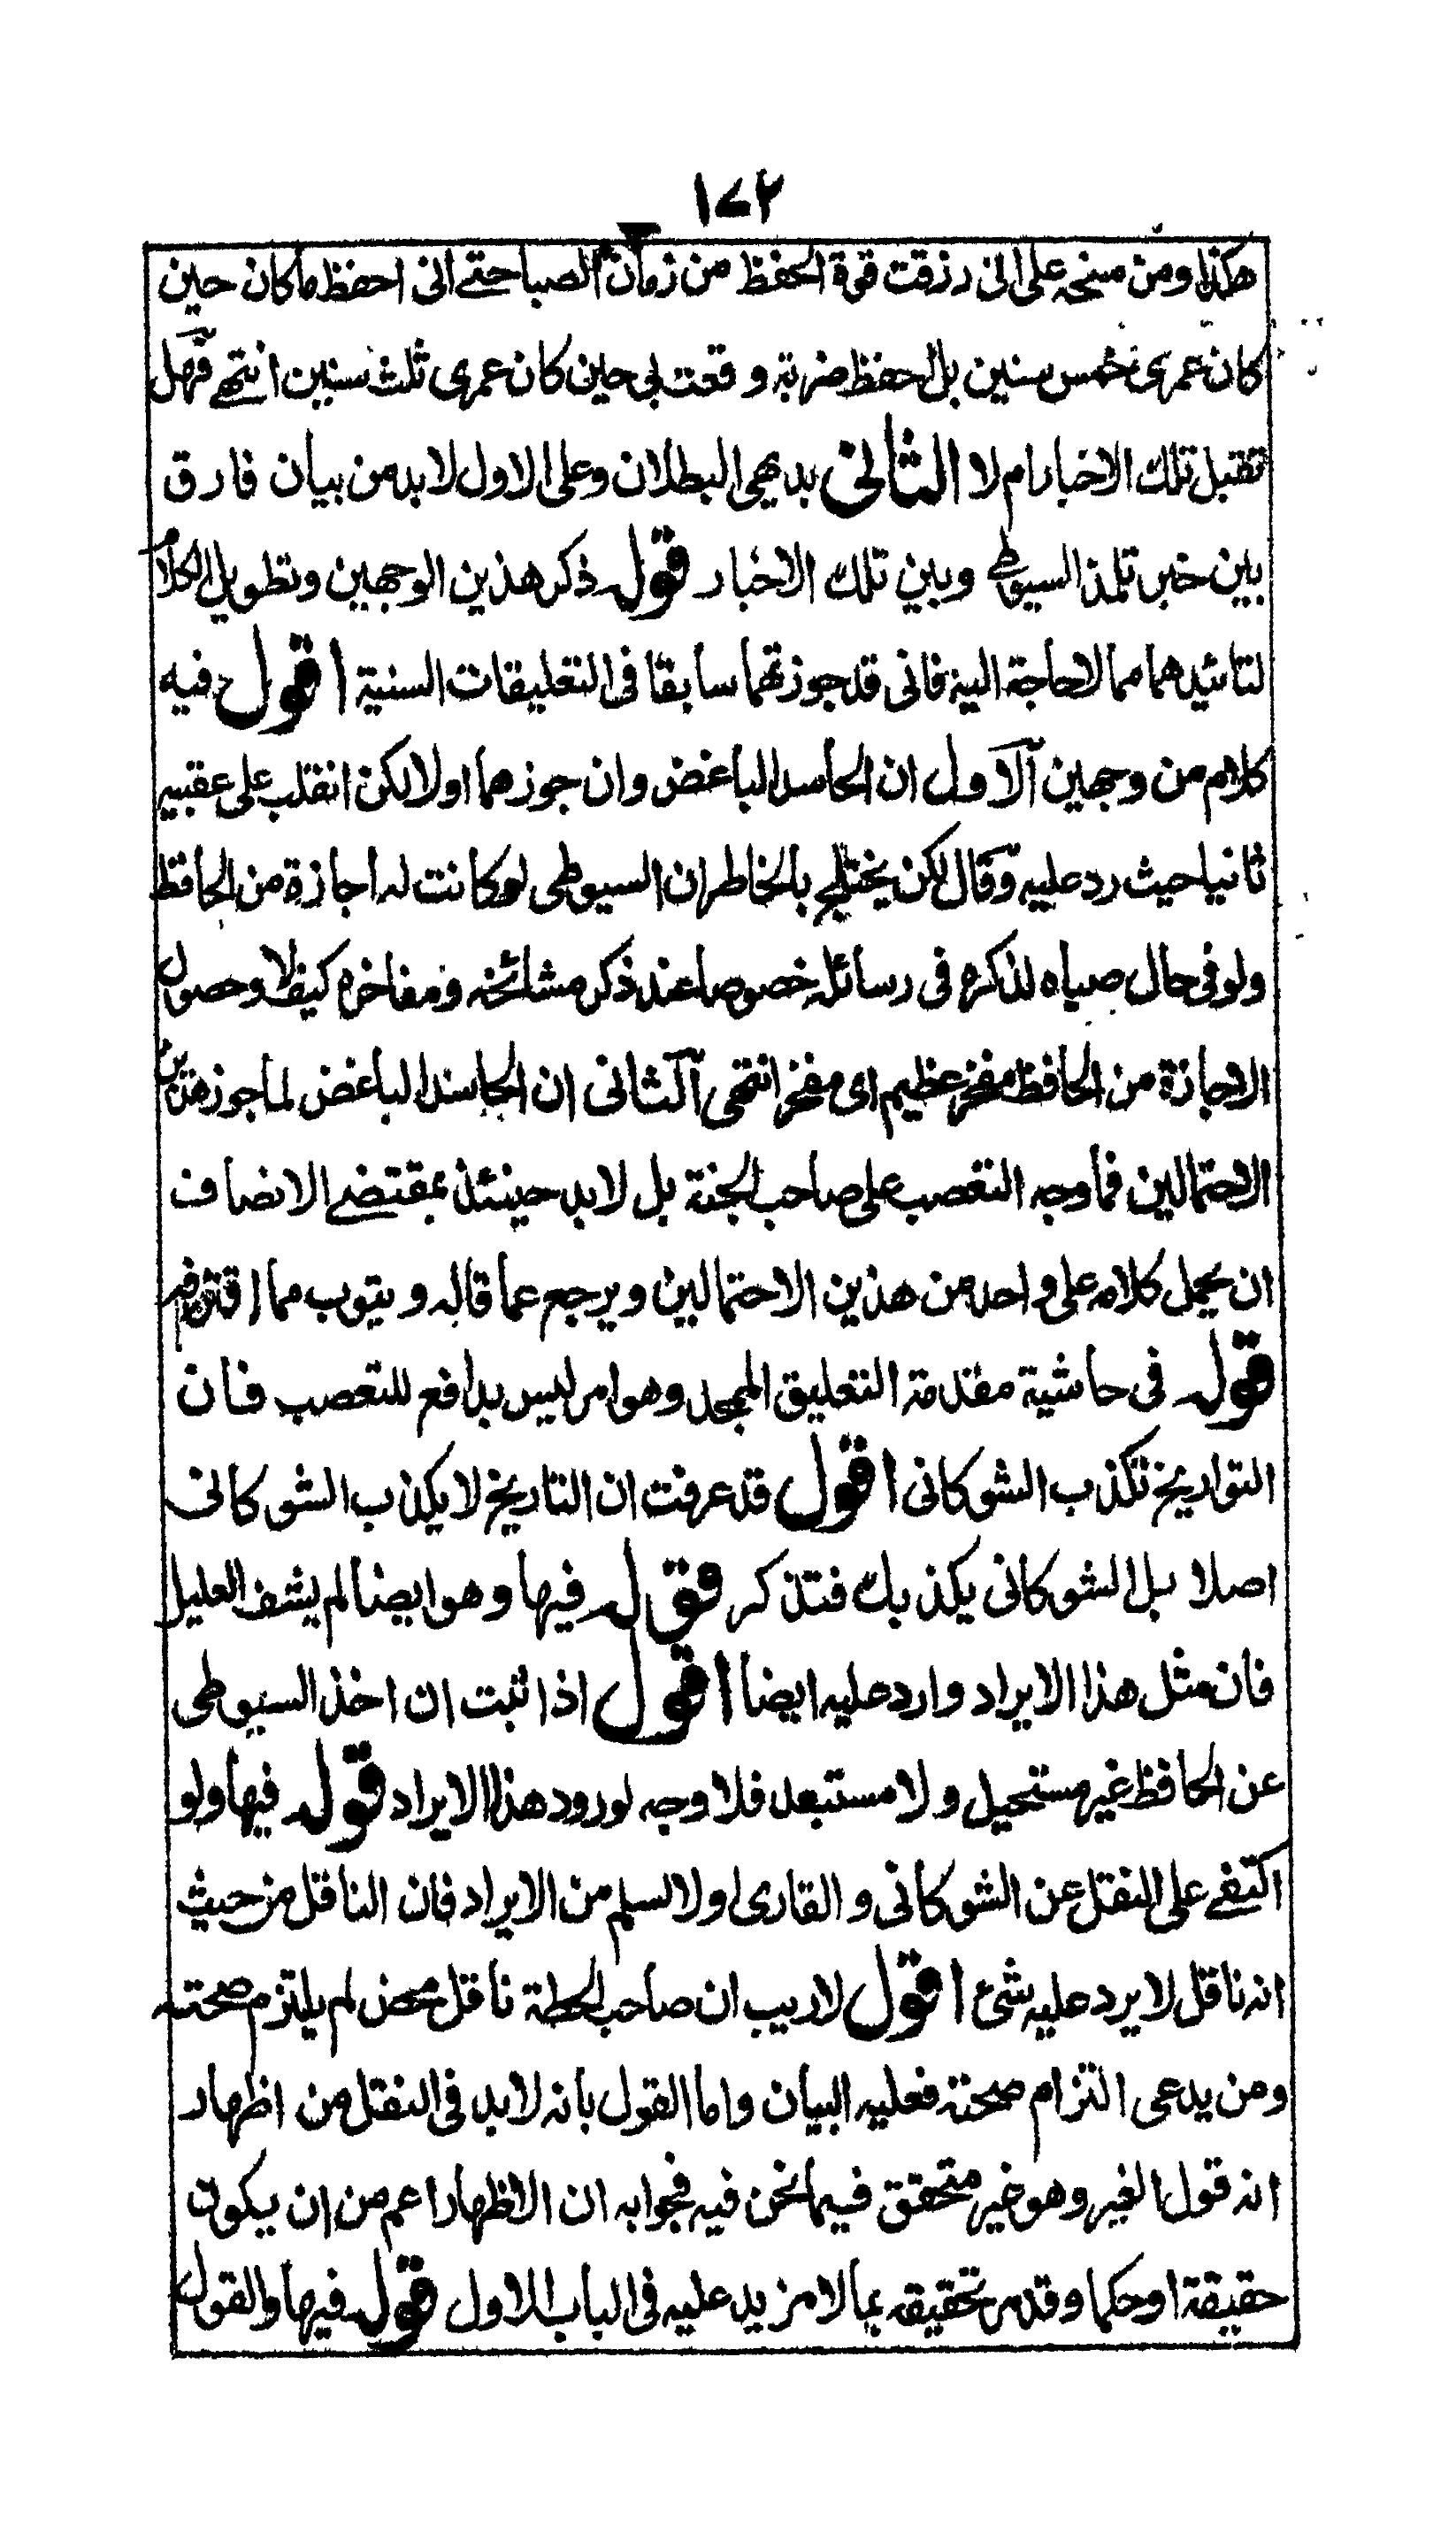 ١٧٢
هكذا ومن منحه على انى رزقت قوة الحفظ من زمان الصبا حتے انى احفظ ما كان حين
كان عمرى خمس سنين بل احفظ ضربة وقعت بى حين كان عمرى ثلث سنين انتهے فهل
تقبل تلك الاخبار ام لا الثانى بديهى البطلان وعلى الاول لابد من بيان فارق
بين خبر تلمذ السيوطے وبين تلك الاخبار قوله ذكر هذين الوجهين وتطويل الكلام
لتائيدهما مما لا حاجة اليه فانى قد جوزتهما سابقا فى التعليقات السنية اقول فيه
كلام من وجهين الاول ان الحاسد الباغض وان جوزهما اولا لكن انقلب على عقبيه
ثانيا حيث رد عليه وقال لكن يختلج بالخاطر ان السيوطى لو كانت له اجازة من الحافظ
ولو فى حال صباه لذكره فى رسائله خصوصا عند ذكر مشائخه ومفاخره كيف لا وحصول
الاجازة من الحافظ مفخر عظيم اى مفخر انتهى الثانى ان الحاسد الباغض لما جوز هذين
الاحتمالين فما وجه التعصب على صاحب الجنة بل لابد حينئذ بمقتضے الانصاف
ان يحمل كلامه على واحد من هذين الاحتمالين ويرجع عما قاله ويتوب مما اقترفه
قوله فى حاشية مقدمة التعليق الممجد وهو امر ليس بدافع للتعصب فان
التواريخ تكذب الشوكانى اقول قد عرفت ان التاريخ لا يكذب الشوكانى
اصلا بل الشوكانى يكذبك فتذكر قوله فيها وهو ايضا لم يشف العليل
فان مثل هذا الايراد وارد عليه ايضا اقول اذا ثبت ان اخذ السيوطى
عن الحافظ غير مستحيل ولا مستبعد فلا وجه لورود هذا الايراد قوله فيها ولو
اكتفے على النقل عن الشوكانى والقارى اولا لسلم من الايراد فان الناقل من حيث
انه ناقل لا يرد عليه شئ اقول لا ريب ان صاحب الحطة ناقل محض لم يلتزم صحته
ومن يدعى التزام صحته فعليه البيان واما القول بانه لابد فى النقل من اظهار
انه قول الغير وهو غير متحقق فيما نحن فيه فجوابه ان الاظهار اعم من ان يكون
حقيقة او حكما وقد مر تحقيقه بما لا مزيد عليه فى الباب الاول قوله فيها والقول